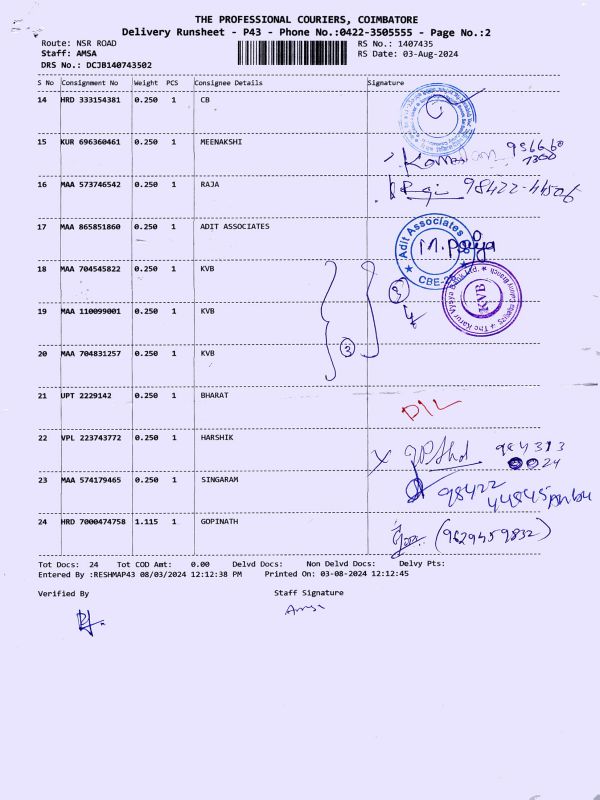 THE PROFESSIONAL COURIERS, COIMBATORE
Delivery Runsheet - P43 - Phone No.:0422-3505555 - Page No.:2
Route: NSR ROAD RS No.: 1407435
Staff: AMSA RS Date: 03-Aug-2024
DRS No.: DCJB140743502
S No Consignment No Weight PCS Consignee Details Signature
14 HRD 333154381 0.250 1 CB
15 KUR 696360461 0.250 1 MEENAKSHI
16 MAA 573746542 0.250 1 RAJA 98422-44506
17 MAA 865851860 0.250 1 ADIT ASSOCIATES
Adit Associates
18 MAA 704545822 0.250 1 KVB
The Karur Vysya Bank Ltd.
KVB
19 MAA 110099001 0.250 1 KVB
20 MAA 704831257 0.250 1 KVB
3
21 UPT 2229142 0.250 1 BHARAT
DIL
22 VPL 223743772 0.250 1 HARSHIK
23 MAA 574179465 0.250 1 SINGARAM
98422
44845
24 HRD 7000474758 1.115 1 GOPINATH
(9629459832)
Tot Docs: 24 Tot COD Amt: 0.00 Delvd Docs: Non Delvd Docs: Delvy Pts:
Entered By :RESHMAP43 08/03/2024 12:12:38 PM Printed On: 03-08-2024 12:12:45
Verified By Staff Signature
Amsa